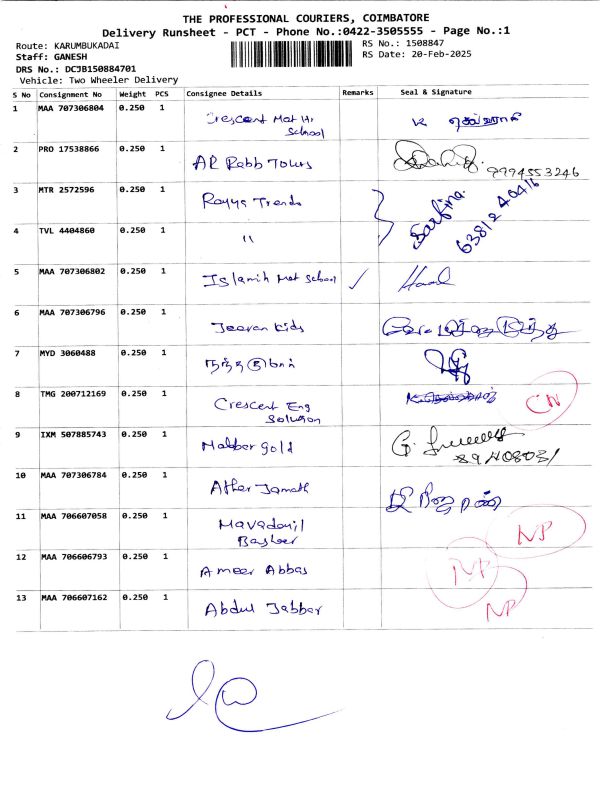 THE PROFESSIONAL COURIERS, COIMBATORE
Delivery Runsheet - PCT - Phone No.:0422-3505555 - Page No.:1
Route: KARUMBUKADAI
RS No.: 1508847
Staff: GANESH
RS Date: 20-Feb-2025
DRS No.: DCJB150884701
Vehicle: Two Wheeler Delivery
S No Consignment No Weight PCS Consignee Details Remarks Seal & Signature
1 MAA 707306804 0.250 1 Crescent Mat Hr
School
2 PRO 17538866 0.250 1 AR Rabb Tours
9994553246
3 MTR 2572596 0.250 1 Rayya Trends
63812 40416
4 TVL 4404860 0.250 1 "
5 MAA 707306802 0.250 1 Islamih Mat School ✓
6 MAA 707306796 0.250 1 Jeevan Kids
7 MYD 3060488 0.250 1
8 TMG 200712169 0.250 1 Crescent Eng CN
Solution
9 IXM 507885743 0.250 1 Malbar gold
10 MAA 707306784 0.250 1 Ather Jamath
11 MAA 706607058 0.250 1 NP
Basheer
12 MAA 706606793 0.250 1 Ameer Abbas NP
13 MAA 706607162 0.250 1 Abdul Jabbar NP